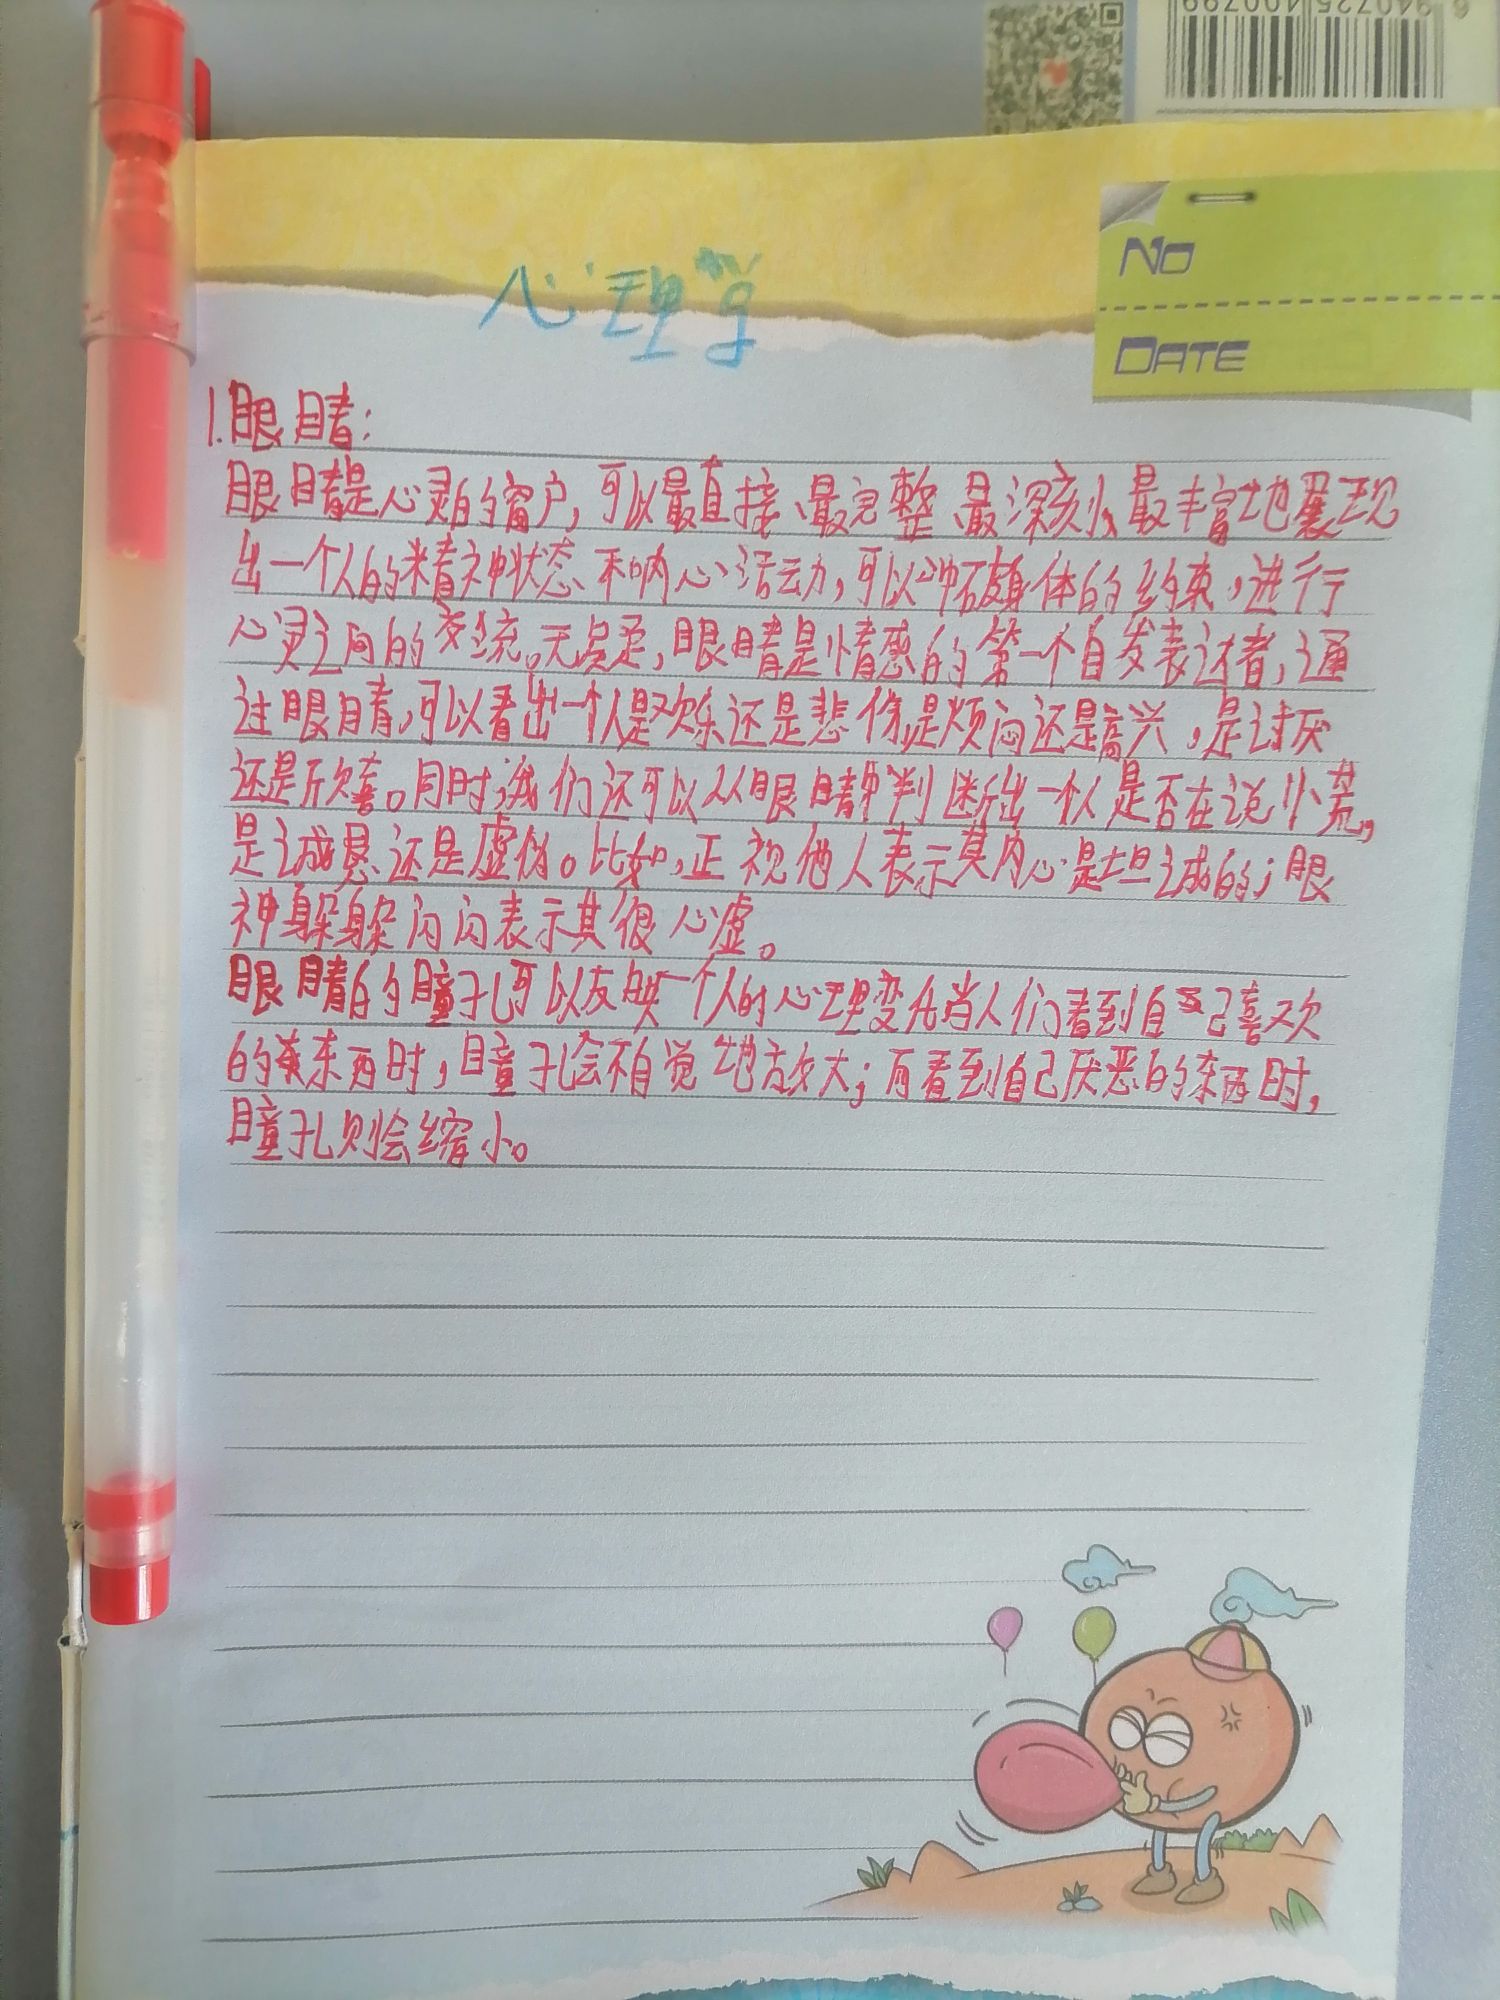 6 940725 400799
NO
DATE
心理学
1.眼睛:
眼睛是心灵的窗户,可以最直接、最完整、最深刻、最丰富地展现
出一个人的精神状态和内心活动,可以冲破身体的约束,进行
心灵之间的交流。无疑,眼睛是情感的第一个自发表达者,通
过眼睛,可以看出一个人是欢乐还是悲伤,是烦闷还是高兴,是讨厌
还是欣喜。同时,我们还可以从眼睛中判断出一个人是否在说谎,
是诚恳还是虚伪。比如,正视他人表示其内心是坦诚的;眼
神躲躲闪闪表示其很心虚。
眼睛的瞳孔可以反映一个人的心理变化当人们看到自己喜欢
的东西时,瞳孔会不自觉地放大;而看到自己厌恶的东西时,
瞳孔则会缩小。